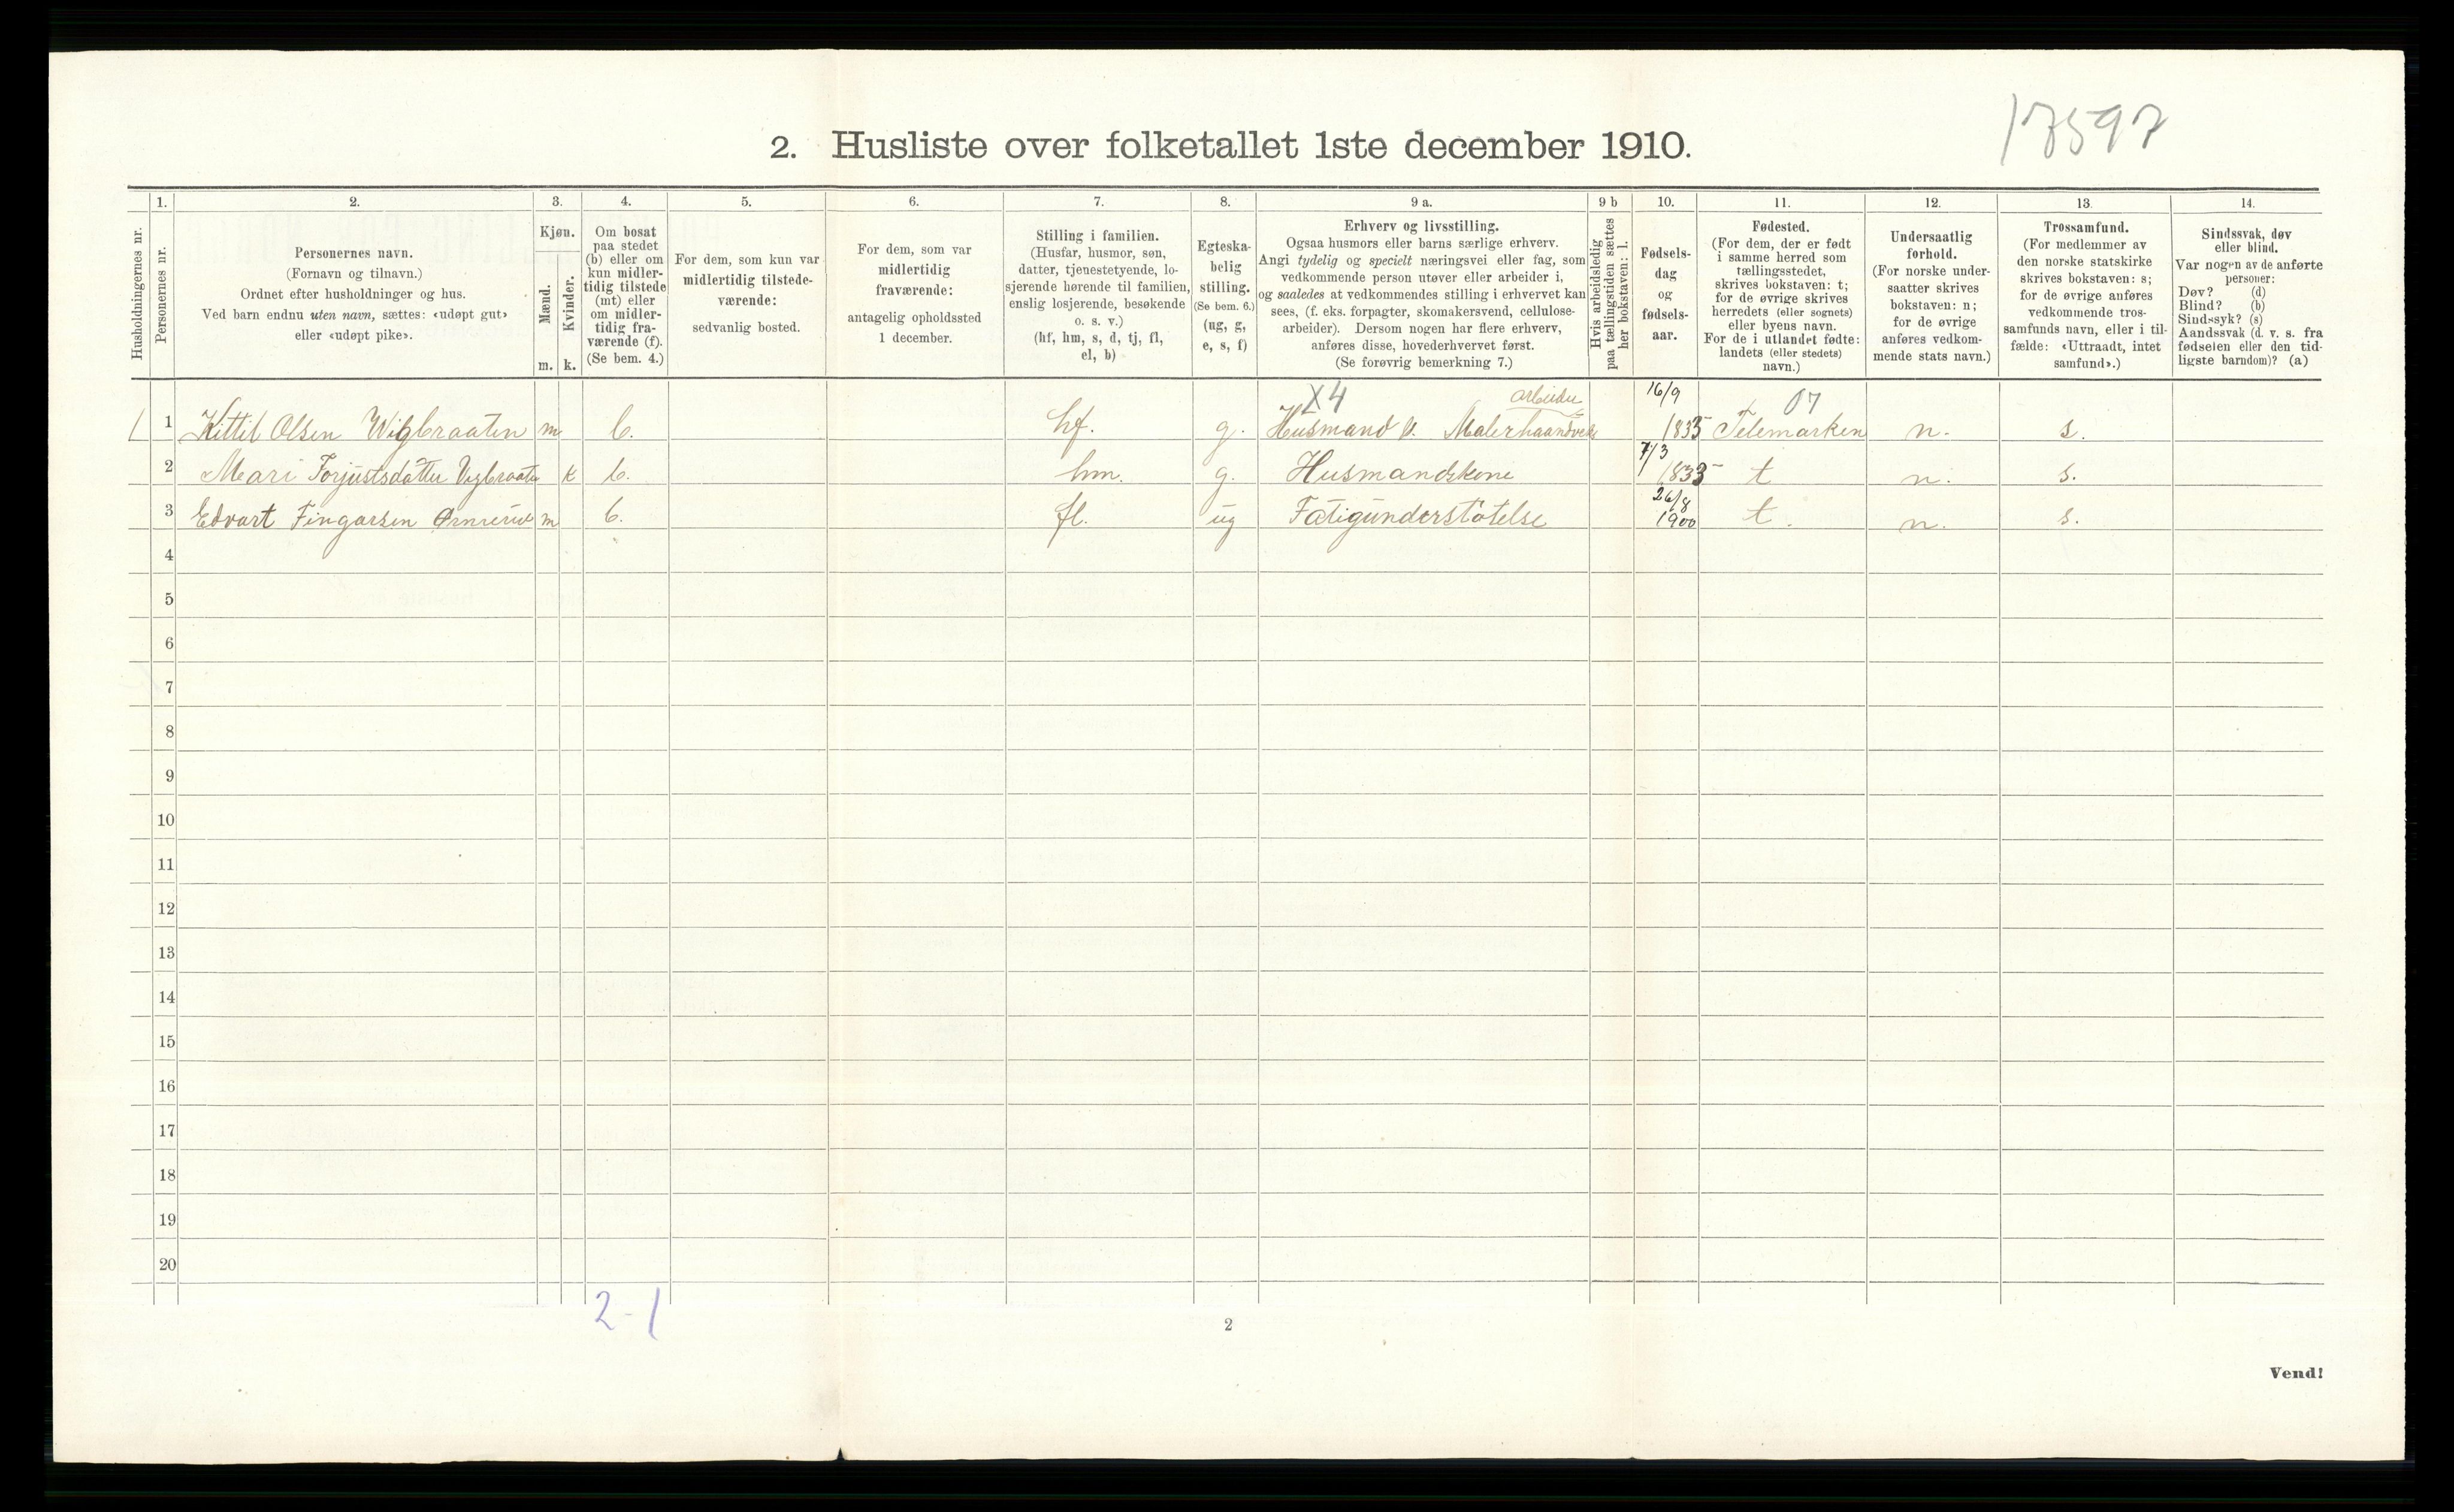 17597
2. Husliste over folketallet 1ste december 1910.
Husholdningernes nr.
1.
Personernes nr.
2.
Personernes navn.
(Fornavn og tilnavn.)
Ordnet efter husholdninger og hus.
Ved barn endnu uten navn, sættes: «udøpt gut»
eller «udøpt pike».
3.
Kjøn.
Mænd.
Kvinder.
m. k.
4.
Om bosat
paa stedet
(b) eller om
kun midler-
tidig tilstede
(mt) eller
om midler-
tidig fra-
værende (f).
(Se bem. 4.)
5.
For dem, som kun var
midlertidig tilstede-
værende:
sedvanlig bosted.
6.
For dem, som var
midlertidig
fraværende:
antagelig opholdssted
1 december.
7.
Stilling i familien.
(Husfar, husmor, søn,
datter, tjenestetyende, lo-
sjerende hørende til familien,
enslig losjerende, besøkende
o. s. v.)
(hf, hm, s, d, tj, fl,
el, b)
8.
Egteska-
belig
stilling.
(Se bem. 6.)
(ug, g,
e, s, f)
9 a.
Erhverv og livsstilling.
Ogsaa husmors eller barns særlige erhverv.
Angi tydelig og specielt næringsvei eller fag, som
vedkommende person utøver eller arbeider i,
og saaledes at vedkommendes stilling i erhvervet kan
sees, (f. eks. forpagter, skomakersvend, cellulose-
arbeider). Dersom nogen har flere erhverv,
anføres disse, hovederhvervet først.
(Se forøvrig bemerkning 7.)
9 b
Hvis arbeidsledig
paa tællingstiden sættes
her bokstaven: l.
10.
Fødsels-
dag
og
fødsels-
aar.
11.
Fødested.
(For dem, der er født
i samme herred som
tællingsstedet,
skrives bokstaven: t;
for de øvrige skrives
herredets (eller sognets)
eller byens navn.
For de i utlandet fødte:
landets (eller stedets)
navn.)
12.
Undersaatlig
forhold.
(For norske under-
saatter skrives
bokstaven: n;
for de øvrige
anføres vedkom-
mende stats navn.)
13.
Trossamfund.
(For medlemmer av
den norske statskirke
skrives bokstaven: s;
for de øvrige anføres
vedkommende tros-
samfunds navn, eller i til-
fælde: «Uttraadt, intet
samfund».)
14.
Sindssvak, døv
eller blind.
Var nogen av de anførte
personer:
Døv? (d)
Blind? (b)
Sindssyk? (s)
Aandssvak (d. v. s. fra
fødselen eller den tid-
ligste barndom)? (a)
X4 arbeider 16/9 07
1 1 Kittil Olsen Wigbraaten m b. hf. g. Husmand 1835 Telemarken n. s.
7/3
2 Mari k b. hm. g. Husmandskone 1835 t n. s.
26/8
3 Edvart Fingarsen m b. fl. ug Fatigunderstøtelse 1900 t. n. s.
4
5
6
7
8
9
10
11
12
13
14
15
16
17
18
19
20
2-1
2
Vend!